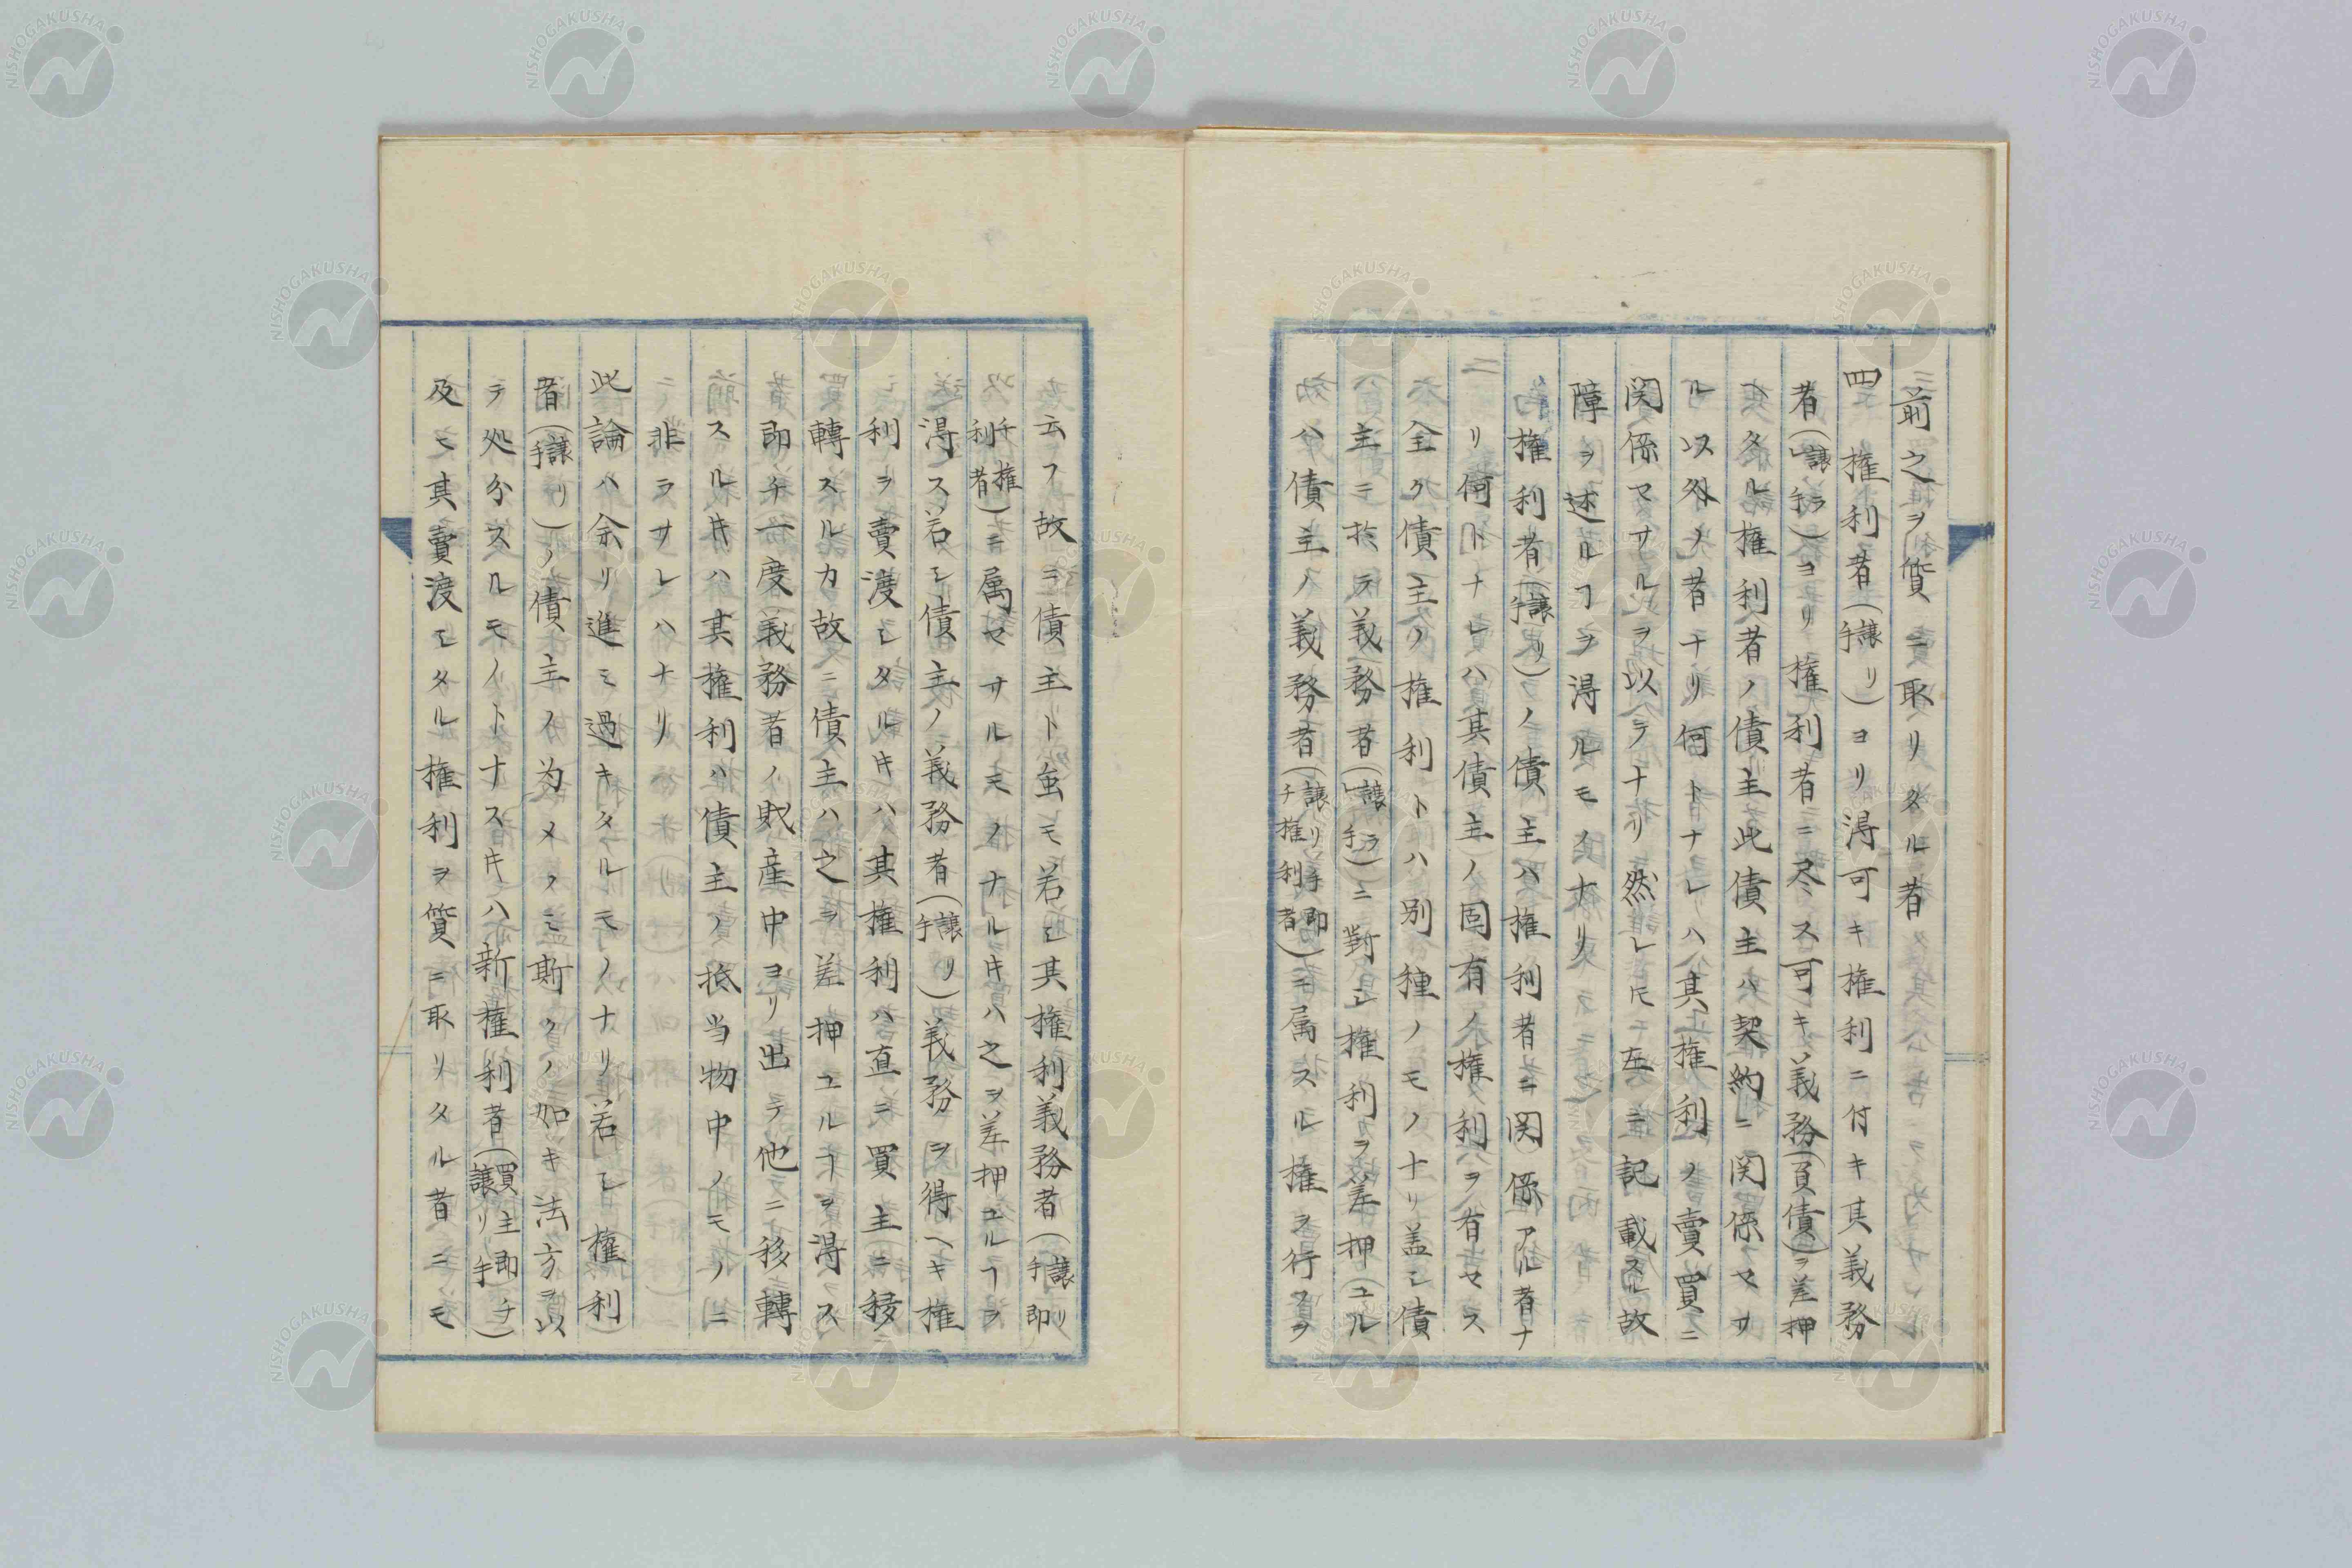 前之ヲ質ニ取リタル者
四 権利者(譲リ手)ヨリ得可キ権利ニ付キ其義務
者(譲ラレ手)ヨリ権利者ニ尽ス可キ義務(負債)ヲ差押
ヘタル権利者ノ債主此債主ハ契約ニ関係セサ
ル以外ノ者ナリ何トナレハ其権利ノ賣買ニ
関係セサルヲ以テナリ然レ𪜈左ニ記載スル故
障ヲ述ルヿヲ得ルモノナリ
権利者(譲リ手)ノ債主ハ権利者ニ関係アル者ナ
リ何トナレハ其債主ノ固有ノ権利ヲ有セス
全ク債主ノ権利トハ別種ノモノナリ盖シ債
主ニ於テ義務者(譲ラレ手)ニ對シ権利ヲ差押ユル
ハ債主ノ義務者(譲リ手即チ権利者)ニ属スル権ヲ行フヲ
云フ故ニ債主ト虽モ若シ其権利義務者(譲リ手即
チ権利者)ニ属セサルモノナルキハ之ヲ差押ユルヿヲ
得ス若シ債主ノ義務者(譲リ手)義務ヲ得ヘキ権
利ヲ賣渡シタルキハ其権利ハ直ニ買主ニ移
轉スルカ故ニ債主ハ之ヲ差押ユルヿヲ得ス
即チ一度義務者ノ財産中ヨリ出テ他ニ移轉
スルキハ其権利ハ債主ノ抵当物中ノモノニ
非ラサレハナリ
此論ハ余リ進ミ過キタルモノナリ若シ権利
者(譲リ手)ノ債主ノ為メノミ斯クノ如キ法方ヲ以
テ処分スルモノトナスキハ新権利者(買主即チ譲リ手)
及モ其賣渡シタル権利ヲ質ニ取リタル者ニモ